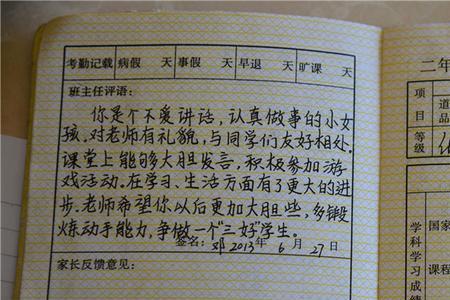 考勤记载 病假 天 事假 天 早退 天 旷课 天
班主任评语:
你是个不爱讲话,认真做事的小女
孩,对老师有礼貌,与同学们友好相处,
课堂上能够大胆发言,积极参加游
戏活动。在学习、生活方面有了更大的进
步。老师希望你以后更加大胆些,多锻
炼动手能力,争做一个“三好”学生。
签名: 邓 2013年 6月 27日
家长反馈意见:
二年
项目
道
品
等级
学科学习成绩
国家
课程